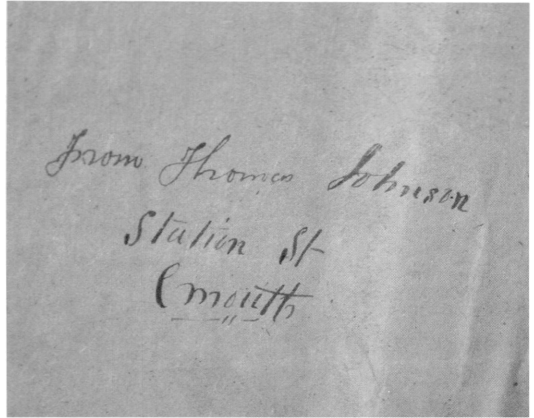 From Thomas Johnson
Station St
Cmouth